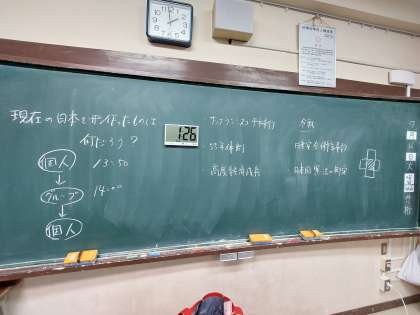 現在の日本を形作ったものは
何だろう？
個人 13:50
↓
グループ 14:00
↓
個人
126
・サンフランシスコ平和条約
・55年体制
・高度経済成長
日米安全保障条約
日本国憲法の制定
月
日